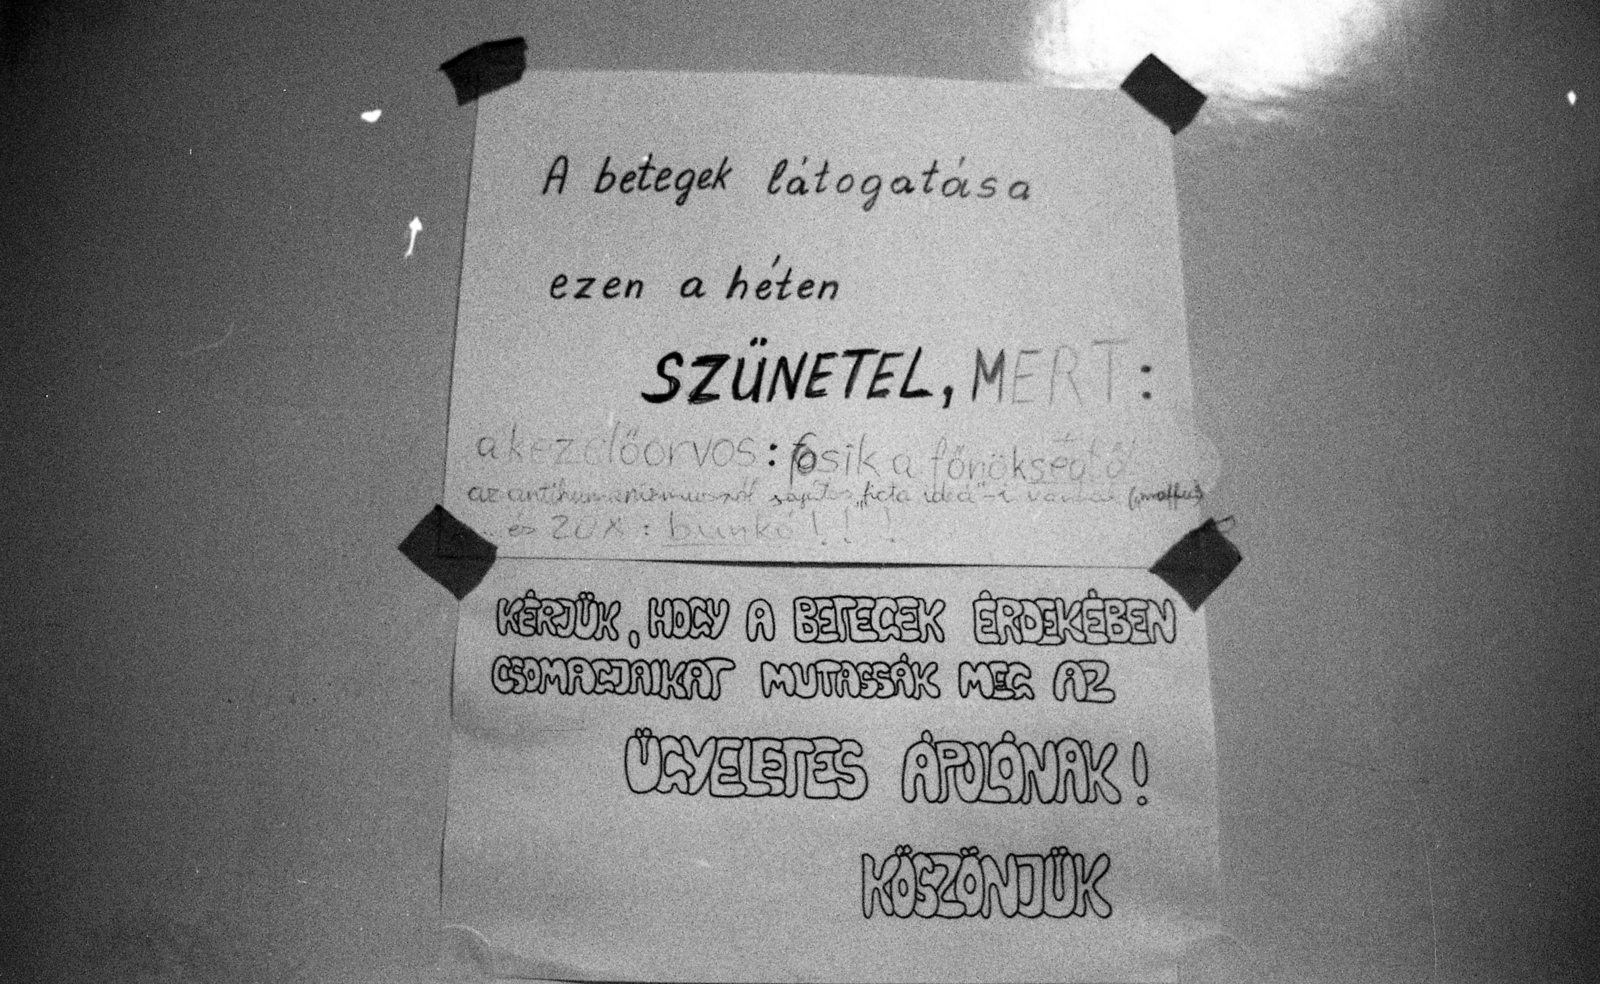 A betegek látogatása
ezen a héten
SZÜNETEL, MERT:
a kezelőorvos: fosik a főnökségtől
az antihumanizmusról sajátos „ficta idea"-i vannak
és 20X: bunkó!!!
KÉRJÜK, HOGY A BETEGEK ÉRDEKÉBEN
CSOMAGJAIKAT MUTASSÁK MEG AZ
ÜGYELETES ÁPOLÓNAK!
KÖSZÖNJÜK